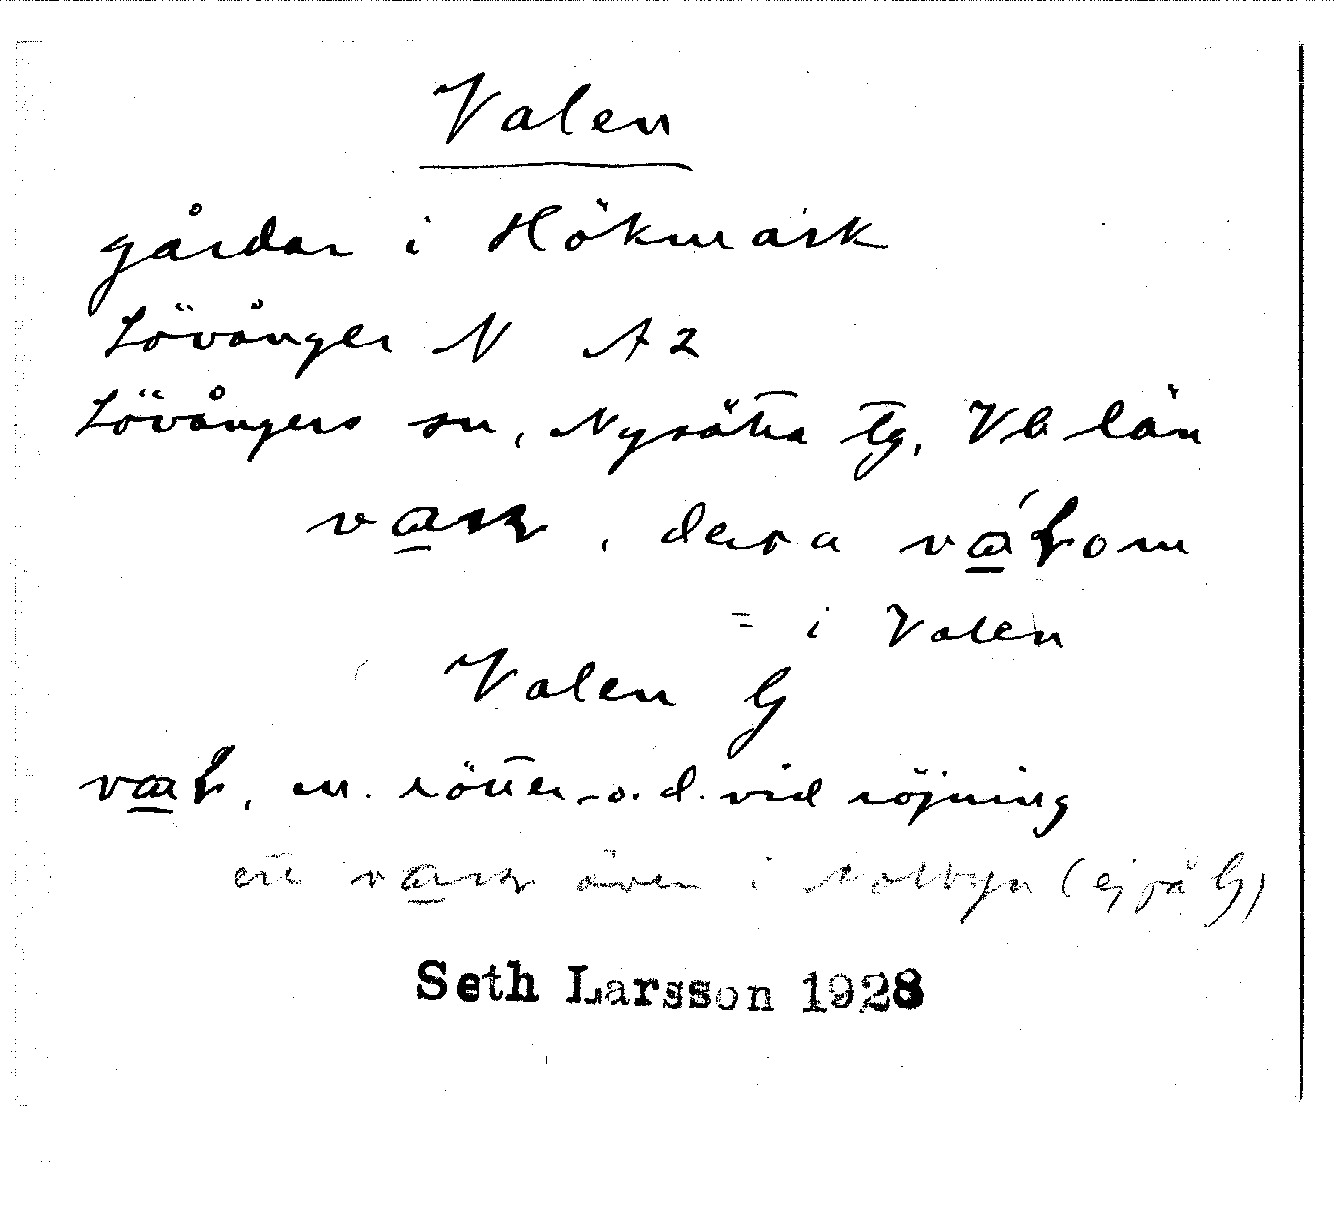 Valen
gårdar i Hökmark
Lövånger N A2
Lövångers sn, Nysätra tg, Vb län
dessa
= i Valen
Valen G
m. rötter o. d. vid röjning
ett även i (ej på G)
Seth Larsson 1928